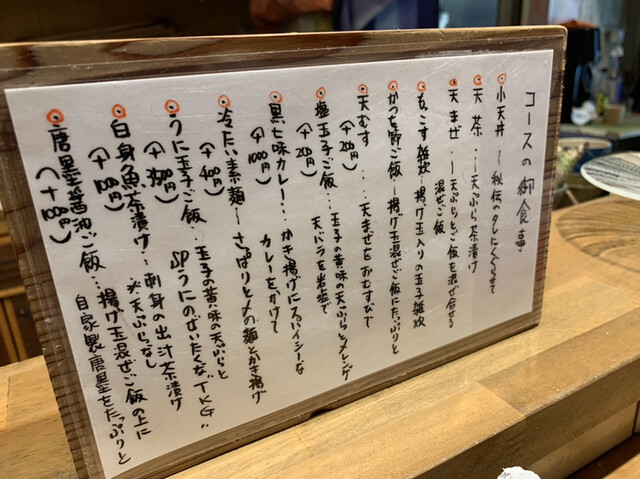 コースの御食事
小天丼 ― 秘伝のタレにくぐらせて
天茶 ‥ 天ぷら茶漬け
天まぜ ‥ 天ぷらとご飯を混ぜ合せる
混ぜご飯
もこす雑炊 ― 揚げ玉入りの玉子雑炊
かつお節ご飯 ― 揚げ玉混ぜご飯にたっぷりと
天むす ‥‥ 天まぜをおむすびで
(+200円)
塩玉子ご飯 ‥ 玉子の黄味の天ぷらとメレンゲ
(+200円)
天バラを岩塩で
黒七味カレー ‥ かき揚げにスパイシーな
(+1000円)
カレーをかけて
冷たい素麺 ― さっぱりと〆の麺とかき揚げ
(+400円)
うに玉子ご飯 ‥ 玉子の黄味の天ぷらと
SPうにのぜいたくな"TKG"
白身魚茶漬け ‥ 刺身の出汁茶漬け
(+1000円)
※天ぷらなし
唐墨醤油ご飯 ‥ 揚げ玉混ぜご飯の上に
(+1000円)
自家製唐墨をたっぷりと